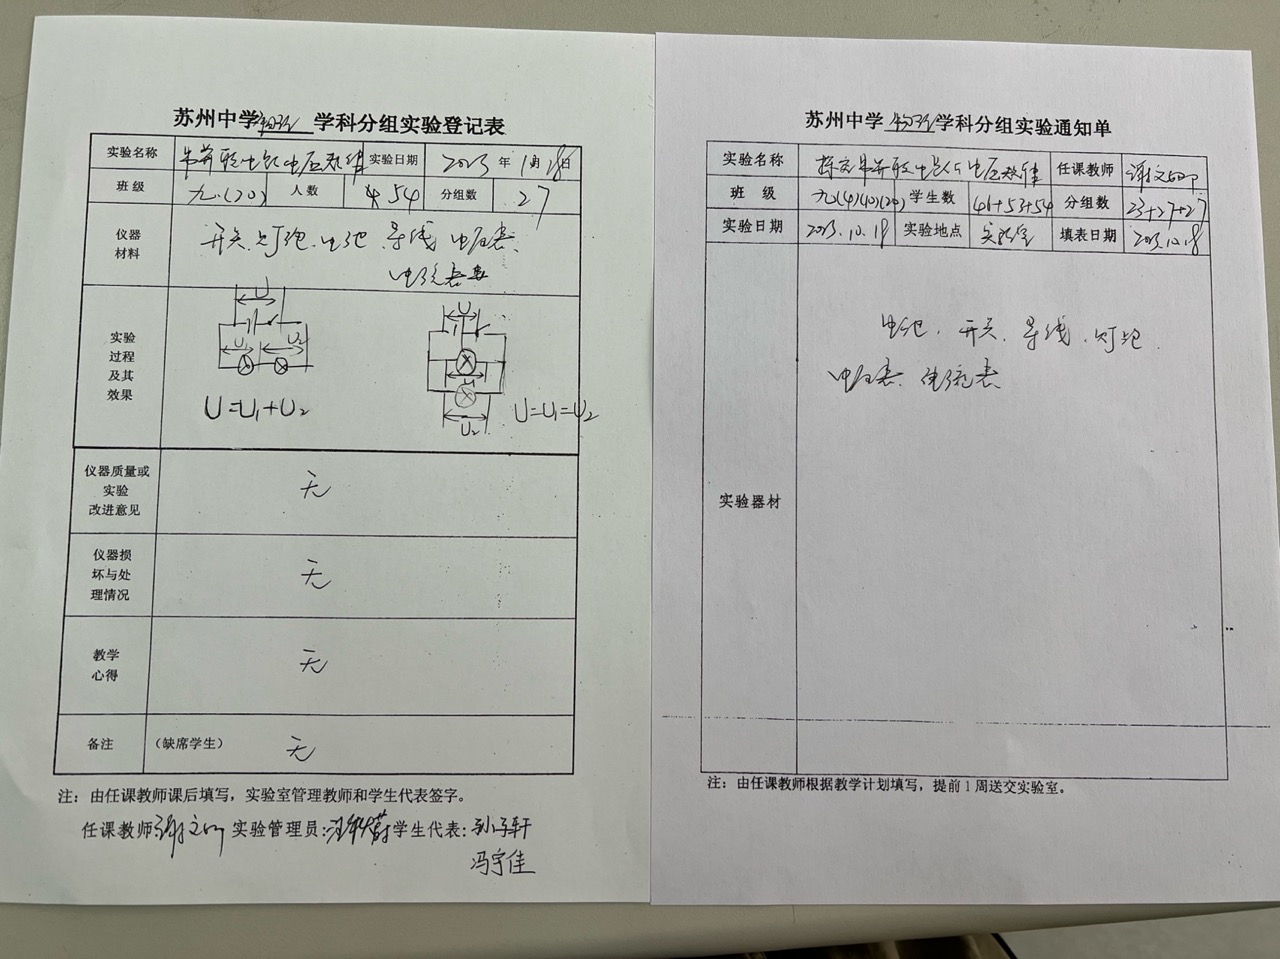 苏州中学物理学科分组实验登记表
实验名称 串并联电路电压规律 实验日期 2023年10月18日
班级 九.(20) 人数 54 分组数 27
仪器材料 开关、灯泡、电池、导线、电压表、
电流表
实验过程及其效果
U
U₁ U₂
U=U₁+U₂
U
U₁
U₂
U=U₁=U₂
仪器质量或实验改进意见 无
仪器损坏与处理情况 无
教学心得 无
备注 (缺席学生) 无
注：由任课教师课后填写，实验室管理教师和学生代表签字。
任课教师 实验管理员: 学生代表: 孙子轩
冯宇佳
苏州中学物理学科分组实验通知单
实验名称 探究串并联电路电压规律 任课教师
班级 九(4)(10)(20) 学生数 46+53+54 分组数 23+27+27
实验日期 2023.10.18 实验地点 实验室 填表日期 2023.10.18
实验器材
电池、开关、导线、灯泡、
电压表、电流表
注：由任课教师根据教学计划填写，提前1周送交实验室。